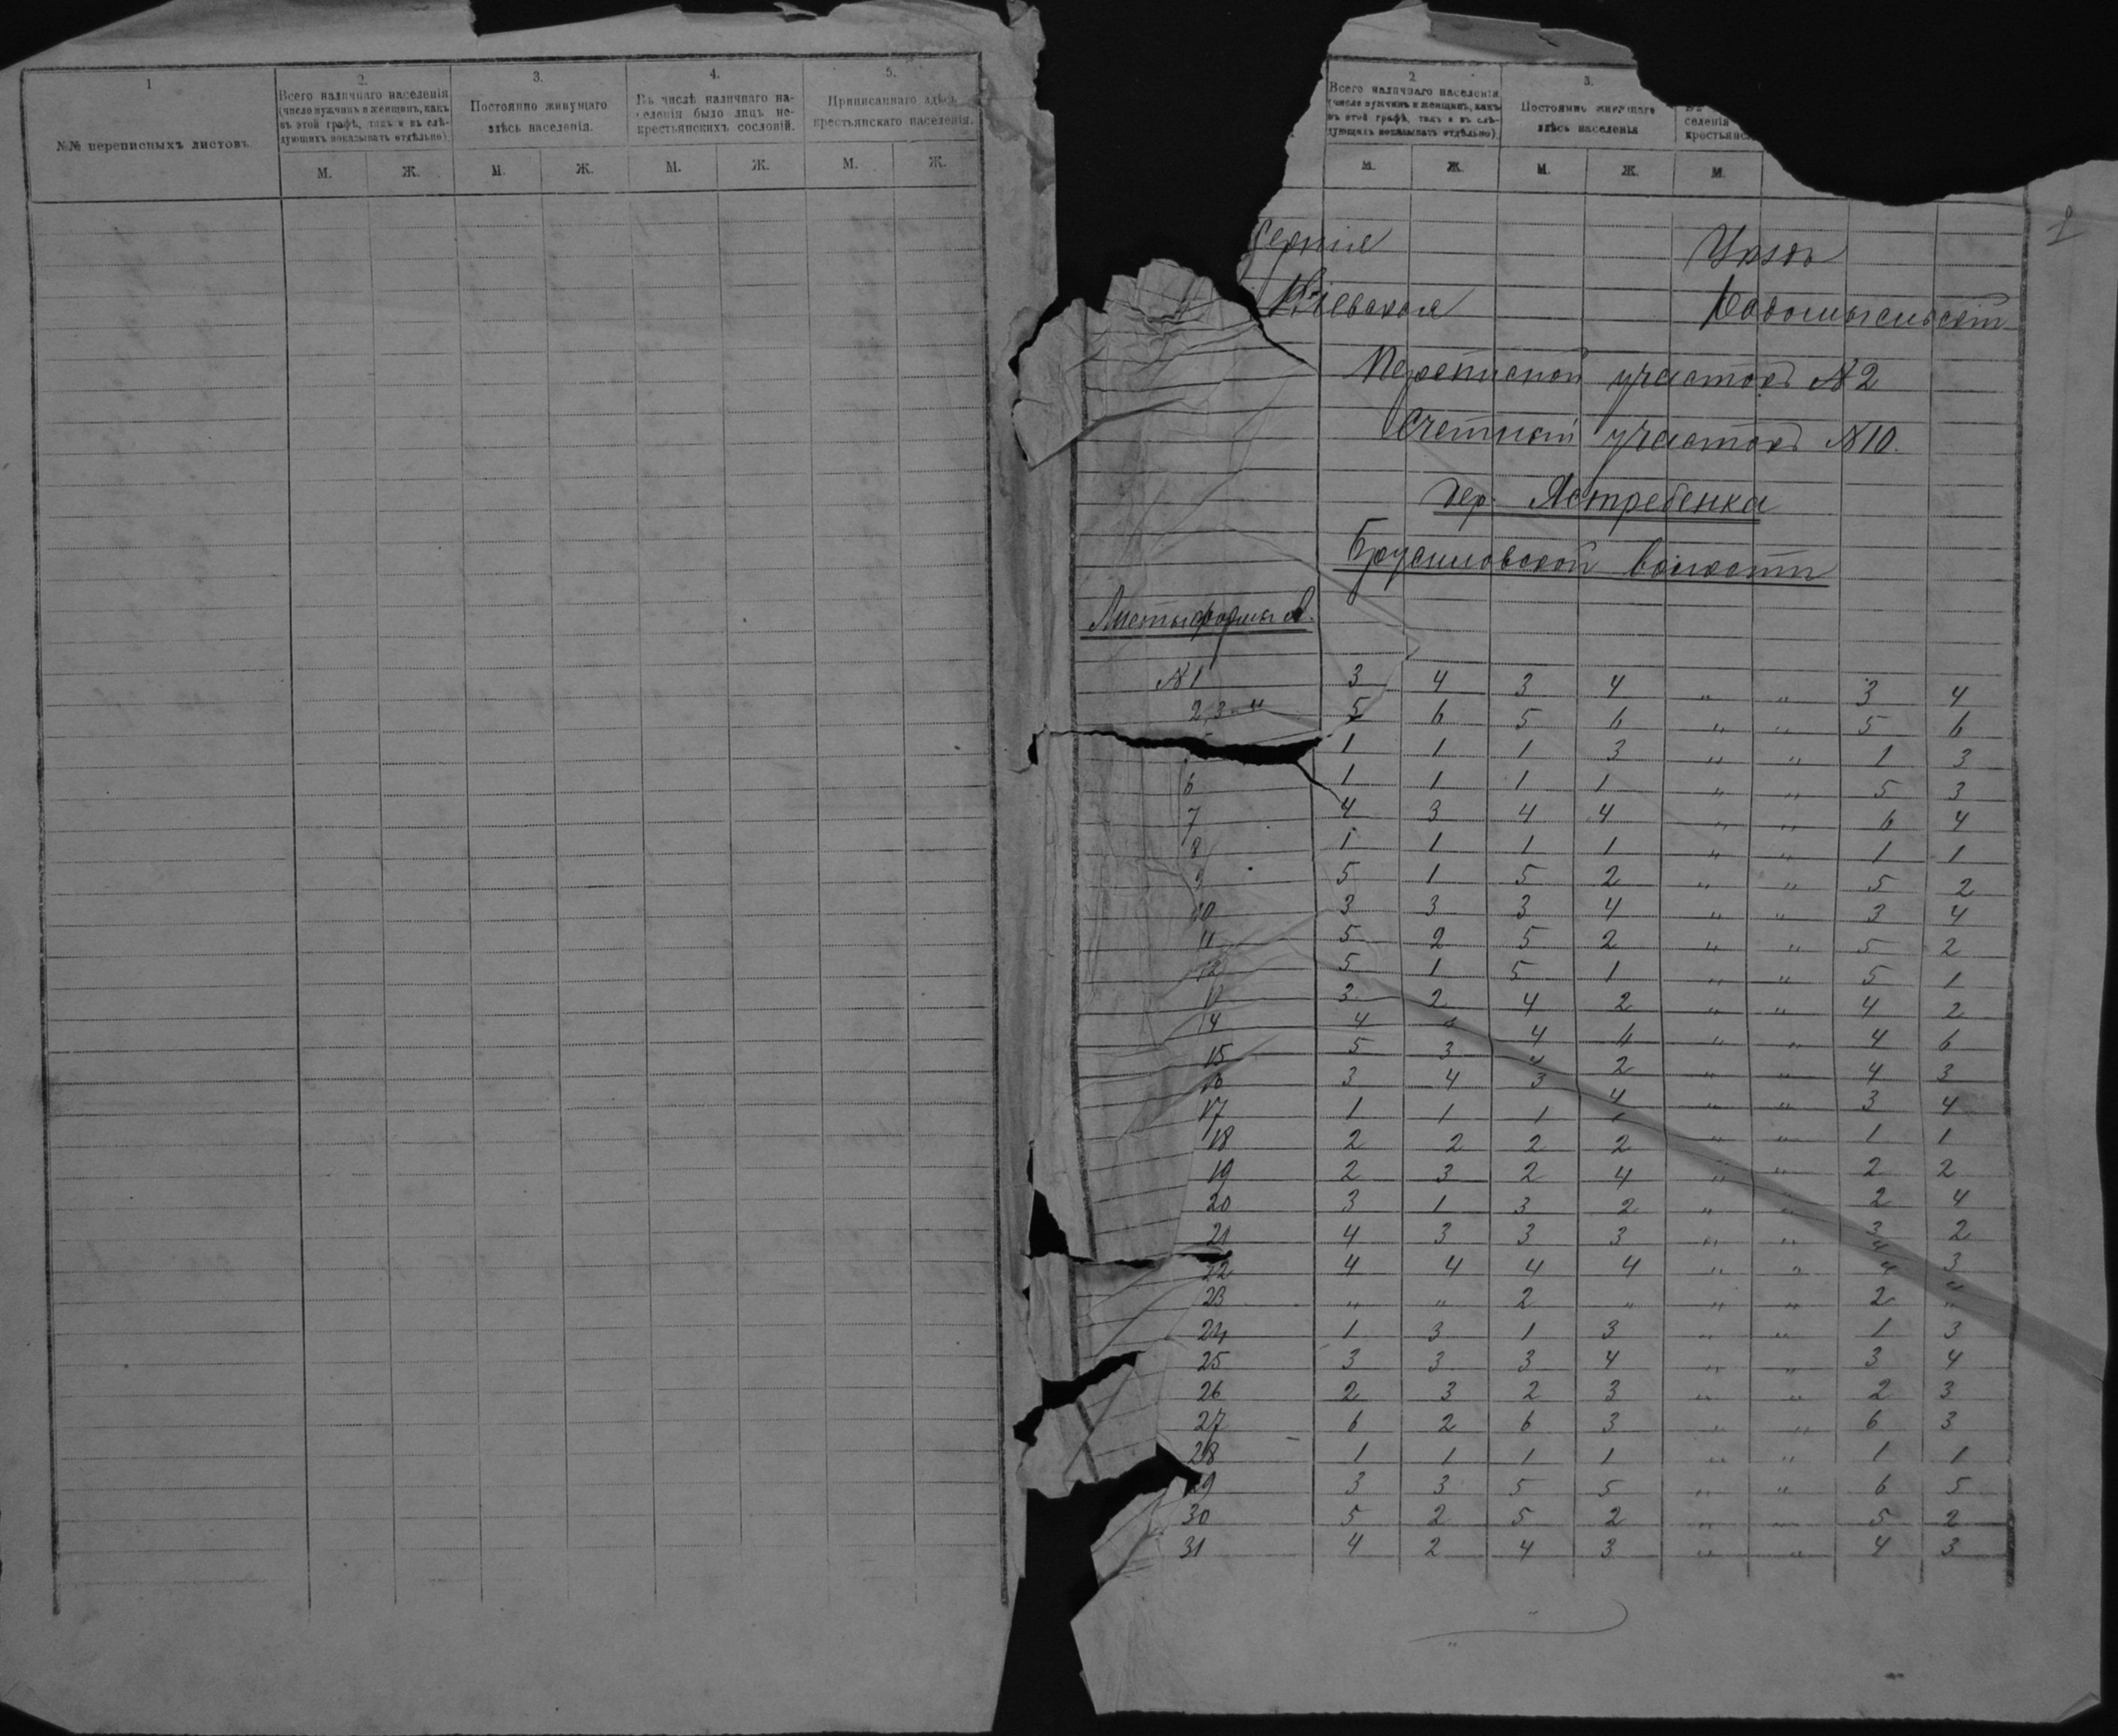 1
2.
3.
4.
5.
№№ переписныхъ листовъ.
Всего наличнаго населенія
(число мужчинъ и женщинъ, какъ
въ этой графѣ, такъ и въ слѣ-
дующихъ показывать отдѣльно).
Постоянно живущаго
здѣсь населенія.
Въ числѣ наличнаго на-
селенія было лицъ не-
крестьянскихъ сословій.
Приписаннаго здѣсь
крестьянскаго населенія.
М. Ж. М. Ж. М. Ж. М. Ж.
2
3.
Всего наличнаго населенія
(число мужчинъ и женщинъ, какъ
въ этой графѣ, такъ и въ слѣ-
дующихъ показывать отдѣльно).
Постоянно живущаго
здѣсь населенія
селенія
крестьянс
М. Ж. М. Ж. М.
Уѣздъ
Кіевская
Переписной участокъ №2
Счетный участокъ №10.
дер. Ястребенка
Брусиловской волости
Листы формы А.
№1 3 4 3 4 „ „ 3 4
2,3 „ 5 6 5 6 „ „ 5 6
1 1 1 3 „ „ 1 3
6 1 1 1 1 „ „ 5 3
7 4 3 4 4 „ „ 6 4
8 1 1 1 1 „ „ 1 1
9 5 1 5 2 „ „ 5 2
10 3 3 3 4 „ „ 3 4
11 5 2 5 2 „ „ 5 2
12 5 1 5 1 „ „ 5 1
13 3 2 4 2 „ „ 4 2
14 4 „ 4 6 „ „ 4 6
15 5 3 4 2 „ „ 4 3
16 3 4 3 4 „ „ 3 4
17 1 1 1 1 „ „ 1 1
18 2 2 2 2 „ „ 2 2
19 2 3 2 4 „ „ 2 4
20 3 1 3 2 „ „ 3 2
21 4 3 3 3 „ „ 4 3
22 4 4 4 4 „ „ 4 4
23 „ „ 2 „ „ „ 2 „
24 1 3 1 3 „ „ 1 3
25 3 3 3 4 „ „ 3 4
26 2 3 2 3 „ „ 2 3
27 6 2 6 3 „ „ 6 3
28 1 1 1 1 „ „ 1 1
29 3 3 5 5 „ „ 6 5
30 5 2 5 2 „ „ 5 2
31 4 2 4 3 „ „ 4 3